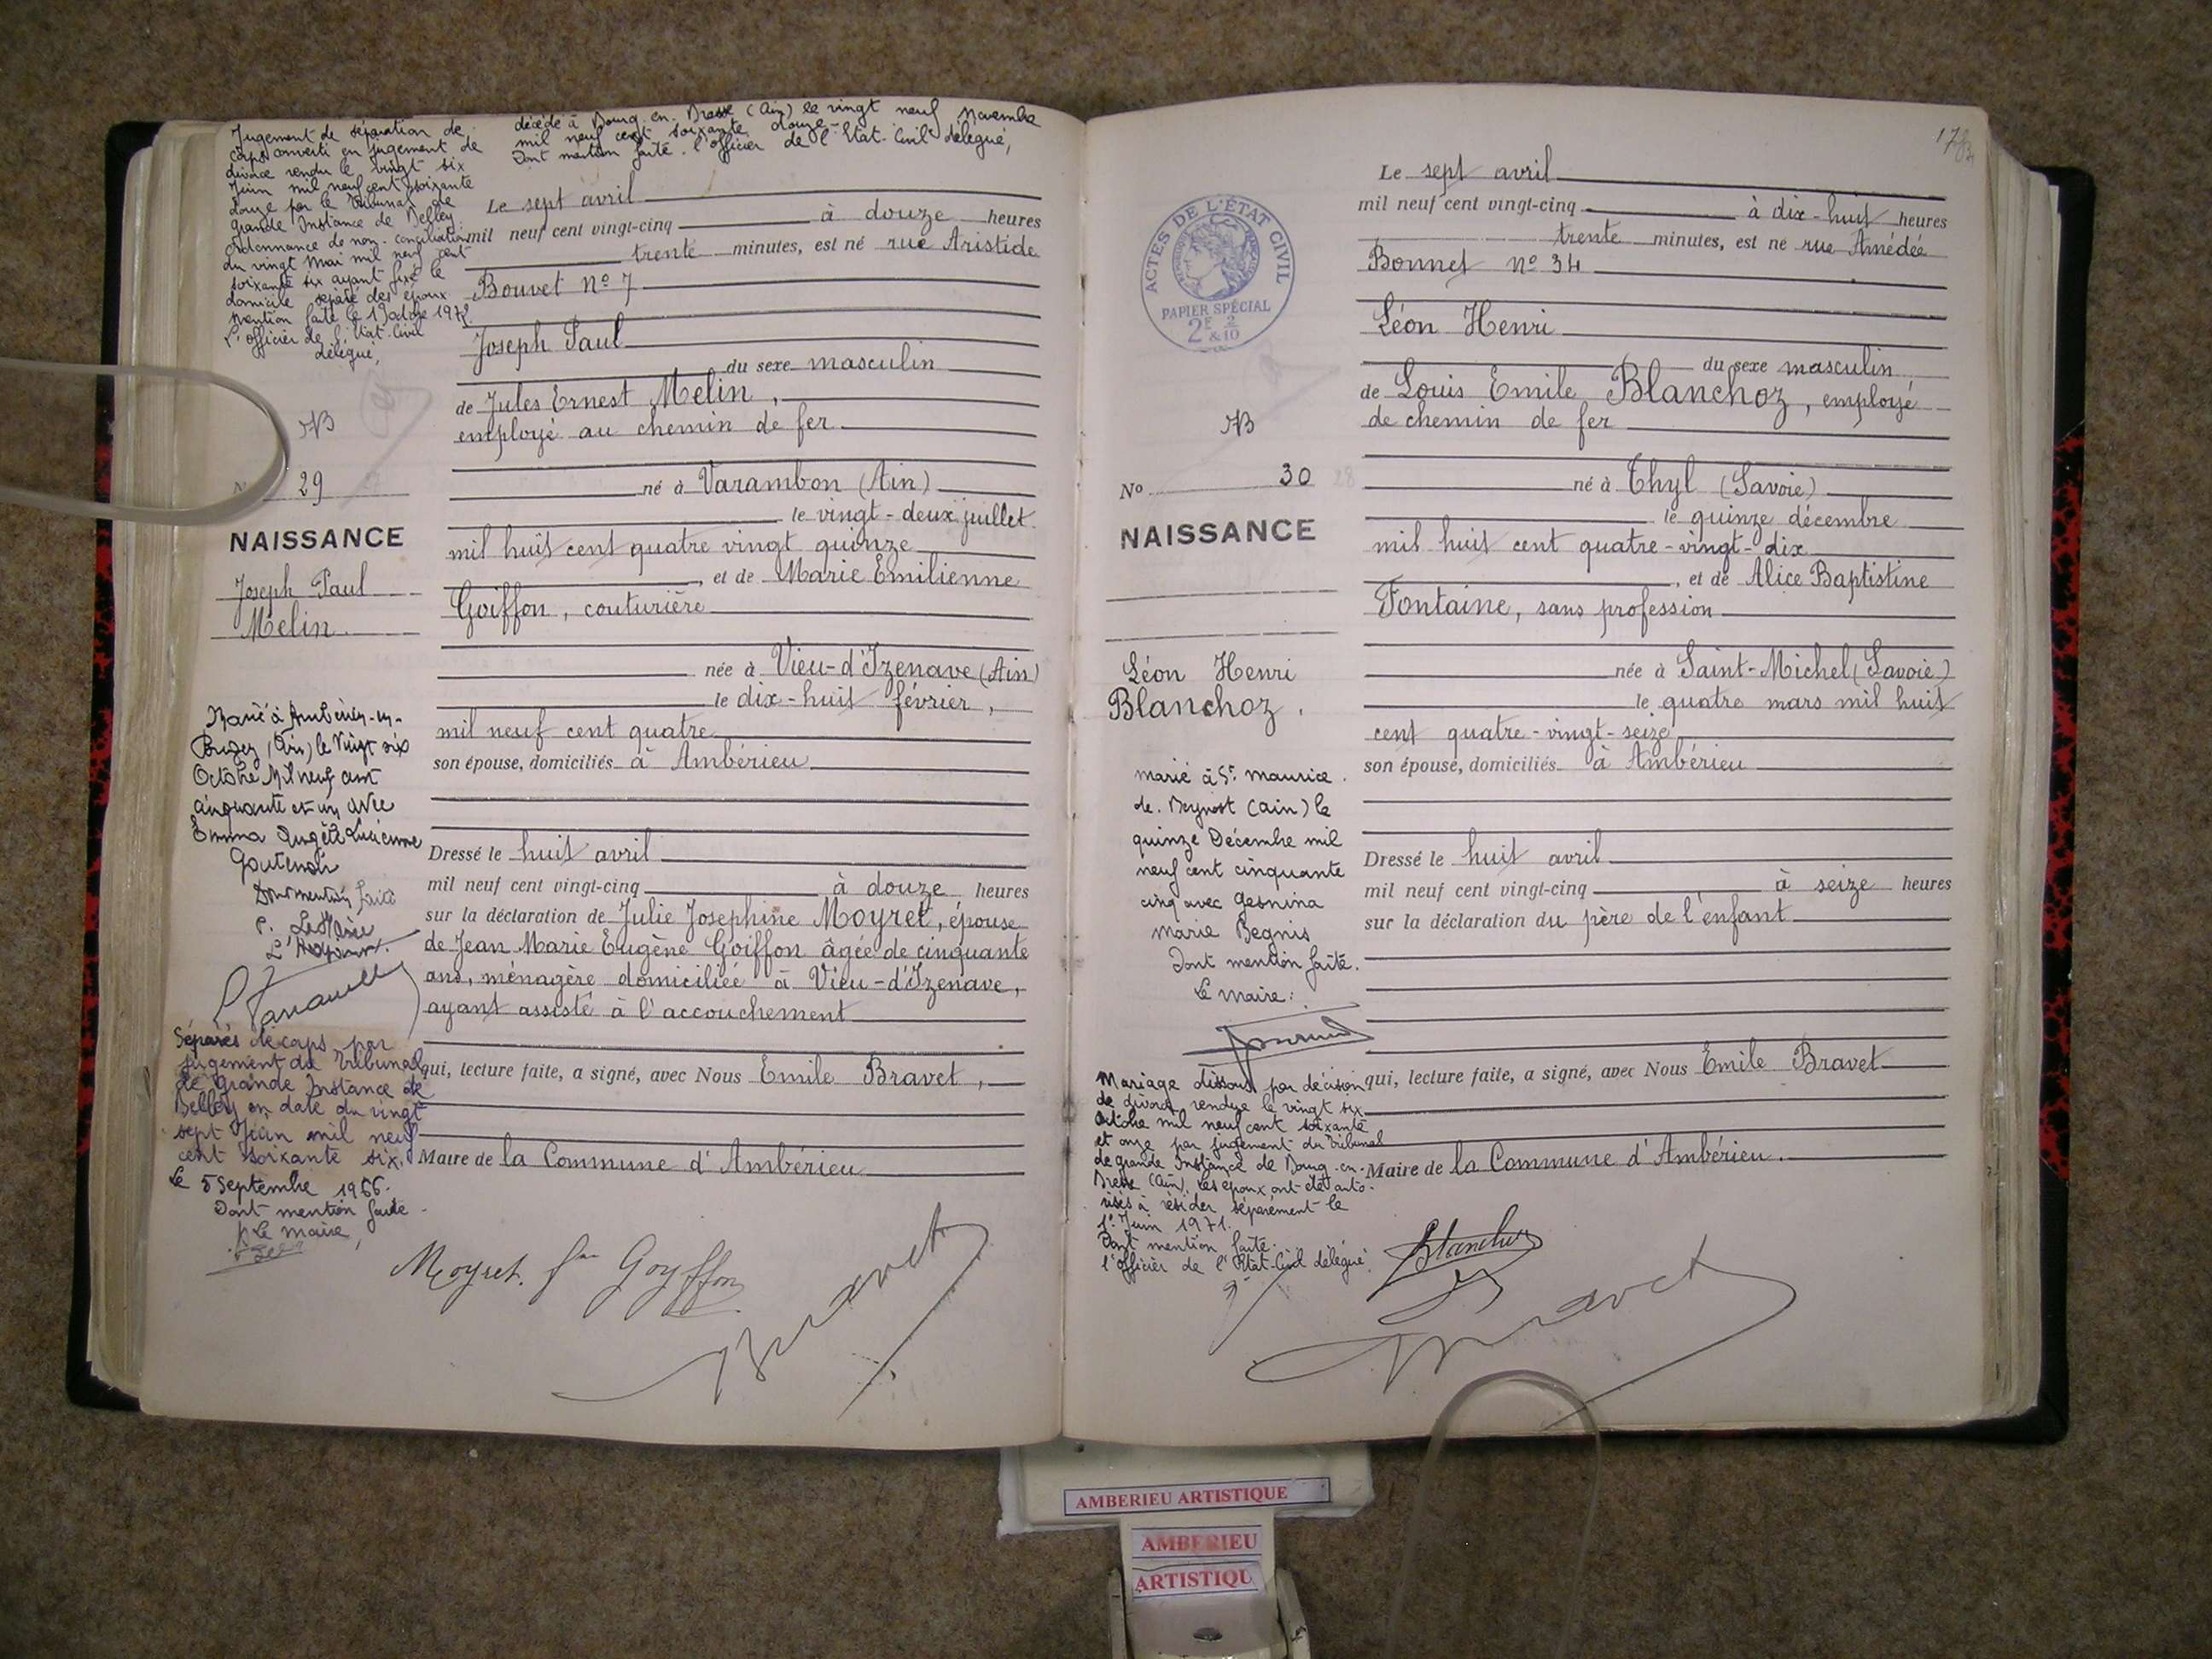 Jugement de séparation de
corps converti en jugement de
divorce rendu le vingt six
Juin mil neuf cent soixante
douze par le Tribunal de
grande Instance de Belley.
Ordonnance de non-conciliation
du vingt Mai mil neuf cent
soixante six ayant fixé le
domicile séparé des époux
Mention faite le 1972
L'officier de l'Etat-Civil
délégué,
décédé à Bourg-en-Bresse (Ain) le vingt neuf Novembre
mil neuf cent soixante douze-
Dont mention faite. l'officier de l'Etat-Civil délégué,
NB
29
NAISSANCE
Joseph Paul
Melin
Marié à Ambérieu-en-
Bugey (Ain) le Vingt six
Octobre Mil neuf cent
cinquante et un avec
Emma Angèle Lucienne
Goutenoir
Dont mention faite
P. Le Maire
L'Adjoint.
Séparés de corps par
jugement du Tribunal
de Grande Instance de
Belley en date du vingt
sept Juin mil neuf
cent soixante six,
Le 5 Septembre 1966.
Dont mention faite-
P. Le Maire,
Le sept avril
mil neuf cent vingt-cinq à douze heures
trente minutes, est né rue Aristide
Bouvet nº 7
Joseph Paul
du sexe masculin
de Jules Ernest Melin,
employé au chemin de fer
né à Varambon (Ain)
le vingt-deux juillet
mil huit cent quatre vingt quinze
, et de Marie Emilienne
Goiffon, couturière
née à Vieu-d'Izenave (Ain)
le dix-huit février,
mil neuf cent quatre
son épouse, domiciliés à Ambérieu
Dressé le huit avril
mil neuf cent vingt-cinq à douze heures
sur la déclaration de Julie Josephine Moyret, épouse
de Jean Marie Eugène Goiffon âgée de cinquante
ans, ménagère domiciliée à Vieu-d'Izenave,
ayant assisté à l'accouchement
qui, lecture faite, a signé, avec Nous Emile Bravet,
Maire de la Commune d'Ambérieu
Moyret. fme Goyffon
Bravet
ACTES DE L'ÉTAT CIVIL
PAPIER SPÉCIAL
2F 2
&10
NB
No 30 28
NAISSANCE
Léon Henri
Blanchoz.
marié à St. Maurice.
de. Beynost (Ain) le
quinze Décembre mil
neuf cent cinquante
cinq avec Gesnina
Marie Begnis
Dont mention faite.
Le Maire:
Mariage dissous par décision
de divorce rendue le vingt six
Octobre mil neuf cent soixante
et onze par jugement du Tribunal
de grande Instance de Bourg-en-
Bresse (Ain). Les époux ont été auto-
risés à résider séparément le
1er Juin 1971.
Dont mention faite.
l'officier de l'Etat-Civil délégué,
Le sept avril
mil neuf cent vingt-cinq à dix-huit heures
trente minutes, est né rue Amédée
Bonnet nº 34
Léon Henri
du sexe masculin
de Louis Emile Blanchoz, employé
de chemin de fer
né à Thyl (Savoie)
le quinze décembre
mil huit cent quatre-vingt-dix
, et de Alice Baptistine
Fontaine, sans profession
née à Saint-Michel (Savoie)
le quatre mars mil huit
cent quatre-vingt-seize
son épouse, domiciliés à Ambérieu
Dressé le huit avril
mil neuf cent vingt-cinq à seize heures
sur la déclaration du père de l'enfant
qui, lecture faite, a signé, avec Nous Emile Bravet
Maire de la Commune d'Ambérieu.
Blanchoz
Bravet
AMBERIEU ARTISTIQUE
AMBERIEU
ARTISTIQU